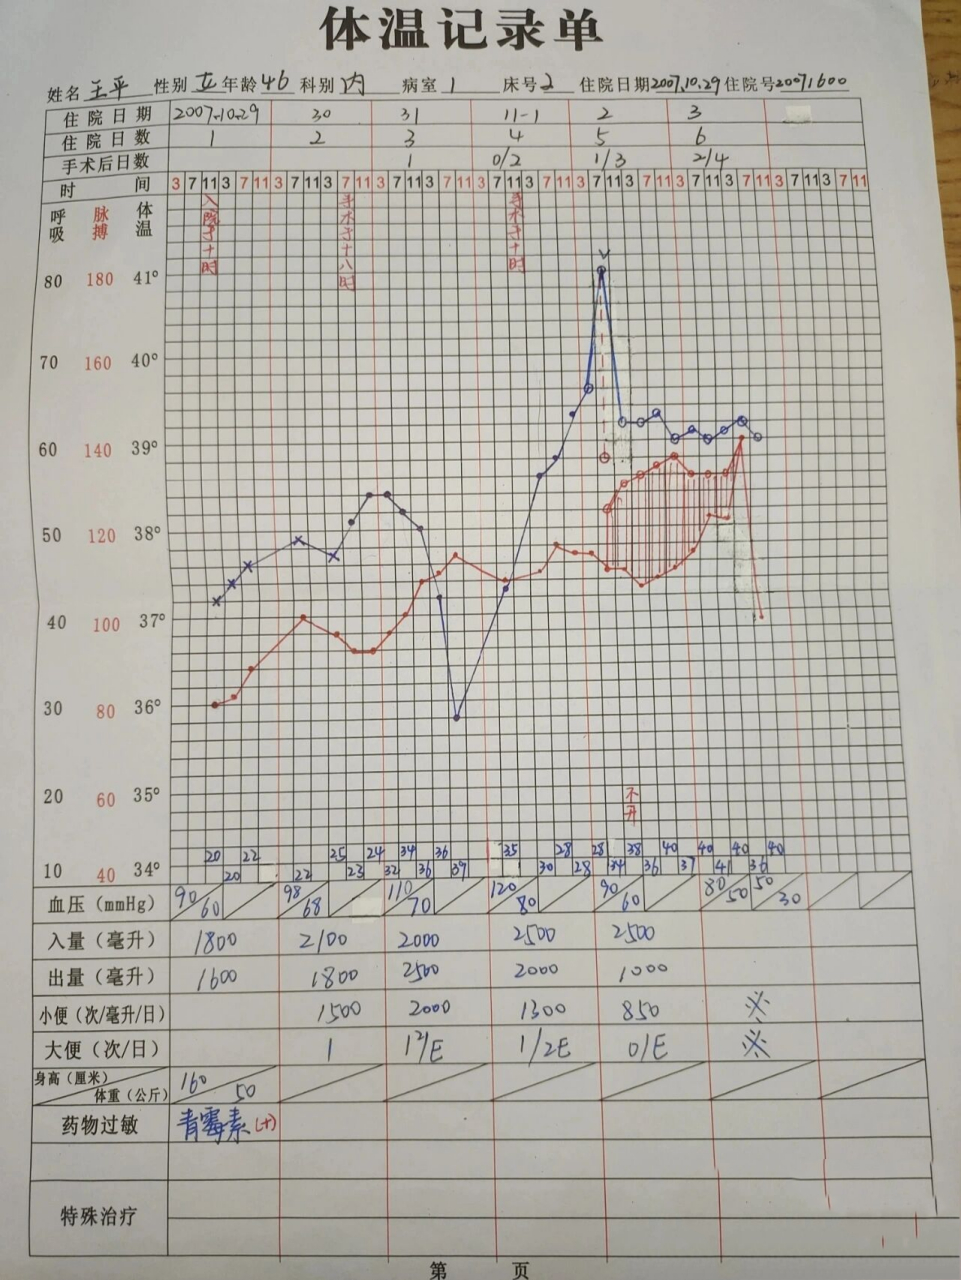 体温记录单
姓名 王平 性别 女 年龄 46 科别 内 病室 1 床号 2 住院日期 2007.10.29 住院号 20071600
住院日期 2007.10.29 30 31 11-1 2 3
住院日数 1 2 3 4 5 6
手术后日数 1 0/2 1/3 2/4
时间 3 7 11 3 7 11 3 7 11 3 7 11 3 7 11 3 7 11 3 7 11 3 7 11 3 7 11 3 7 11 3 7 11 3 7 11 3 7 11 3 7 11
呼吸 脉搏 体温
入院于十时
手术于十八时
手术于十时
80 180 41°
70 160 40°
60 140 39°
50 120 38°
40 100 37°
30 80 36°
20 60 35°
不升
10 40 34°
20 22 25 24 34 36 35 28 28 38 40 40 40 40
20 22 23 32 36 39 30 28 34 36 37 41 36
血压（mmHg） 90/60 98/68 110/70 120/80 90/60 80/50 50/30
入量（毫升） 1800 2100 2000 2500 2500
出量（毫升） 1600 1800 2500 2000 1000
小便（次/毫升/日） 1500 2000 1300 850 ※
大便（次/日） 1 1 2/E 1/2E 0/E ※
身高（厘米） 体重（公斤） 160 50
药物过敏 青霉素(+)
特殊治疗
第 页